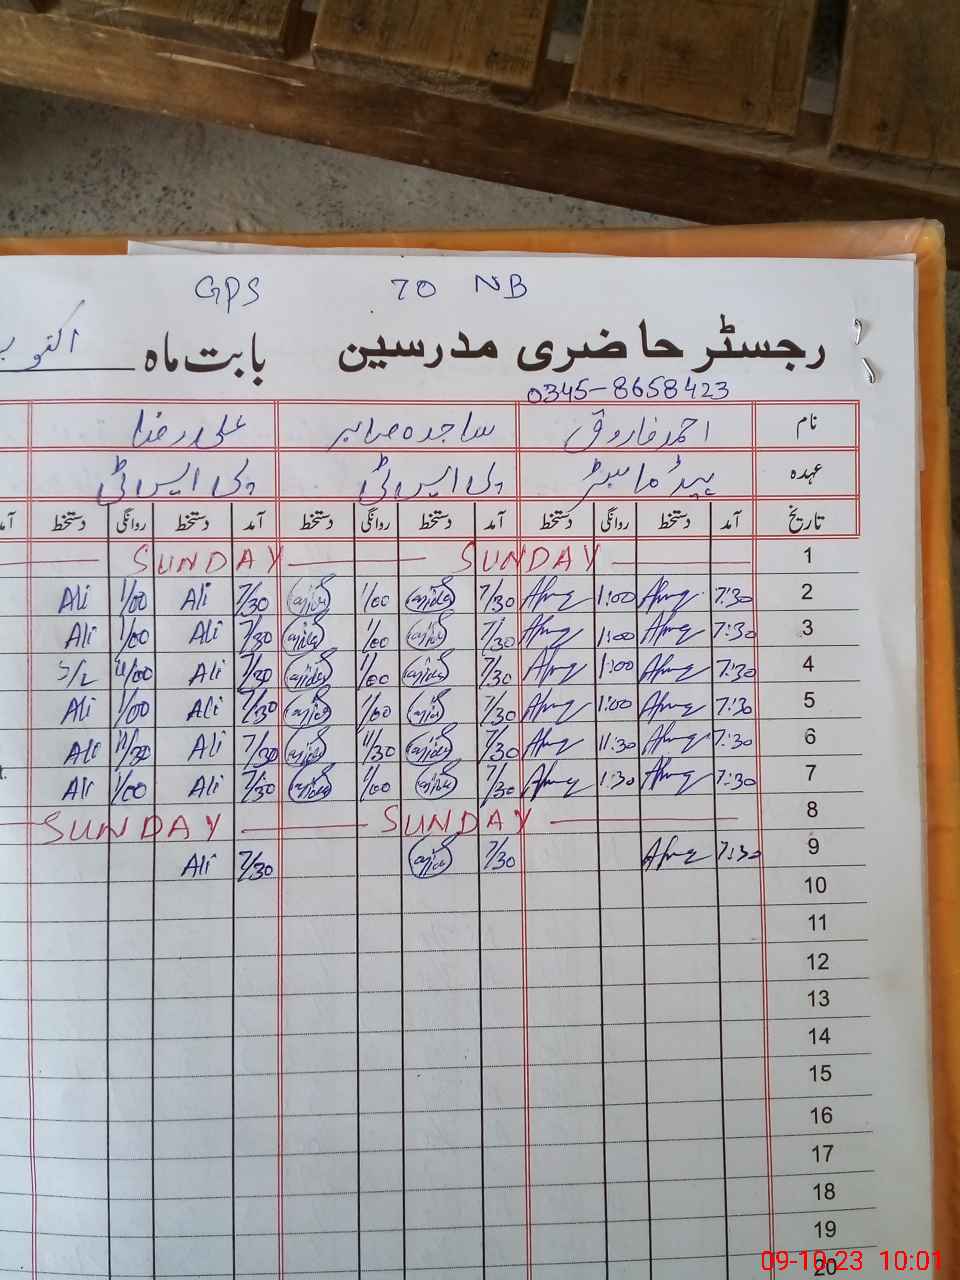 GPS 70 NB
رجسٹر حاضری مدرسین بابت ماہ اکتوبر
0345-8658423
نام احمد فاروق ساجدہ صابر علی رضا
عہدہ ہیڈ ماسٹر پی ایس ٹی پی ایس ٹی
تاریخ آمد دستخط روانگی دستخط آمد دستخط روانگی دستخط آمد دستخط روانگی دستخط آمد
1 SUNDAY SUNDAY
2 7:30 1:00 7/30 1/00 7/30 Ali 1/00 Ali
3 7:30 1:00 7/30 1/00 7/30 Ali 1/00 Ali
4 7:30 1:00 7/30 1/00 7/30 Ali S/L
5 7:30 1:00 7/30 1/00 7/30 Ali 1/00 Ali
6 7:30 11:30 7/30 11/30 7/30 Ali 11/30 Ali
7 7:30 1:30 7/30 1/00 7/30 Ali 1/00 Ali
8 SUNDAY SUNDAY
9 7:30 7/30 7/30 Ali
10
11
12
13
14
15
16
17
18
19
20
09-10-23 10:01